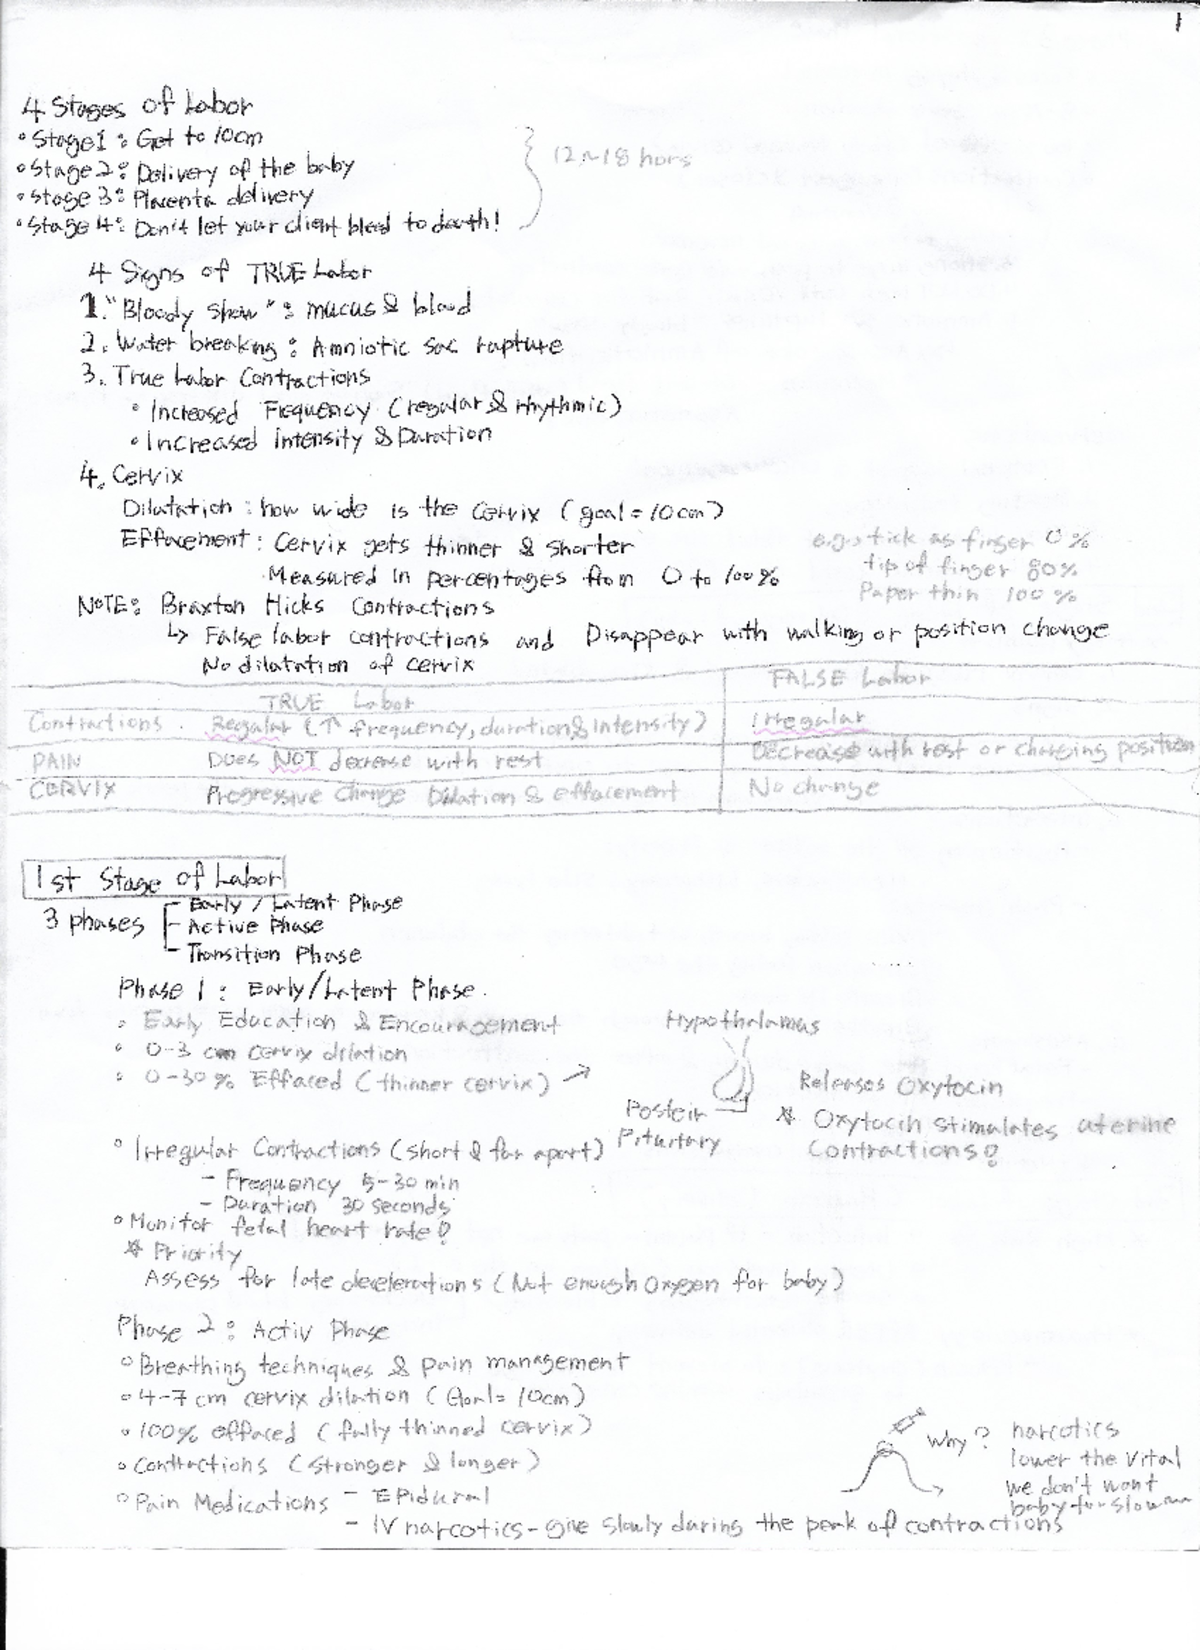 1
4 Stages of Labor
• Stage 1: Get to 10cm
• Stage 2: Delivery of the baby
• Stage 3: Placenta delivery
• Stage 4: Don't let your client bleed to death!
12~18 hors
4 Signs of TRUE Labor
1. "Bloody show": mucus & blood
2. Water breaking: Amniotic sac rupture
3. True Labor Contractions
• Increased Frequency (regular & rhythmic)
• Increased intensity & Duration
4. Cervix
Dilatation: how wide is the cervix (goal = 10cm)
Effacement: Cervix gets thinner & shorter
Measured in percentages from 0 to 100%
e.g., tick as finger 0%
tip of finger 80%
Paper thin 100%
NOTE: Braxton Hicks Contractions
↳ False labor contractions and Disappear with walking or position change
No dilatation of cervix
TRUE Labor FALSE Labor
Contractions. Regular (↑ frequency, duration & intensity) Irregular
PAIN Does NOT decrease with rest Decrease with rest or changing position
CERVIX Progressive Change Dilation & effacement No change
1st Stage of Labor
3 phases
- Early / Latent Phase
- Active Phase
- Transition Phase
Phase 1: Early/Latent Phase.
• Early Education & Encouragement
• 0-3 cm cervix dilation
• 0-30% Effaced (thinner cervix) →
Hypothalamus
Posteir Pituitary
Releases Oxytocin
* Oxytocin stimulates uterine
Contractions!
• Irregular Contractions (short & far apart)
- Frequency 5-30 min
- Duration 30 seconds
• Munitor fetal heart rate!
* Priority
Assess for late decelerations (Not enough Oxygen for baby)
Phase 2: Activ Phase
• Breathing techniques & pain management
• 4-7 cm cervix dilation (Goal= 10cm)
• 100% effaced (fully thinned cervix)
• Contractions (stronger & longer)
• Pain Medications - EPidural
- IV narcotics - give slowly during the peak of contractions
Why? narcotics
lower the vital
we don't want
baby for